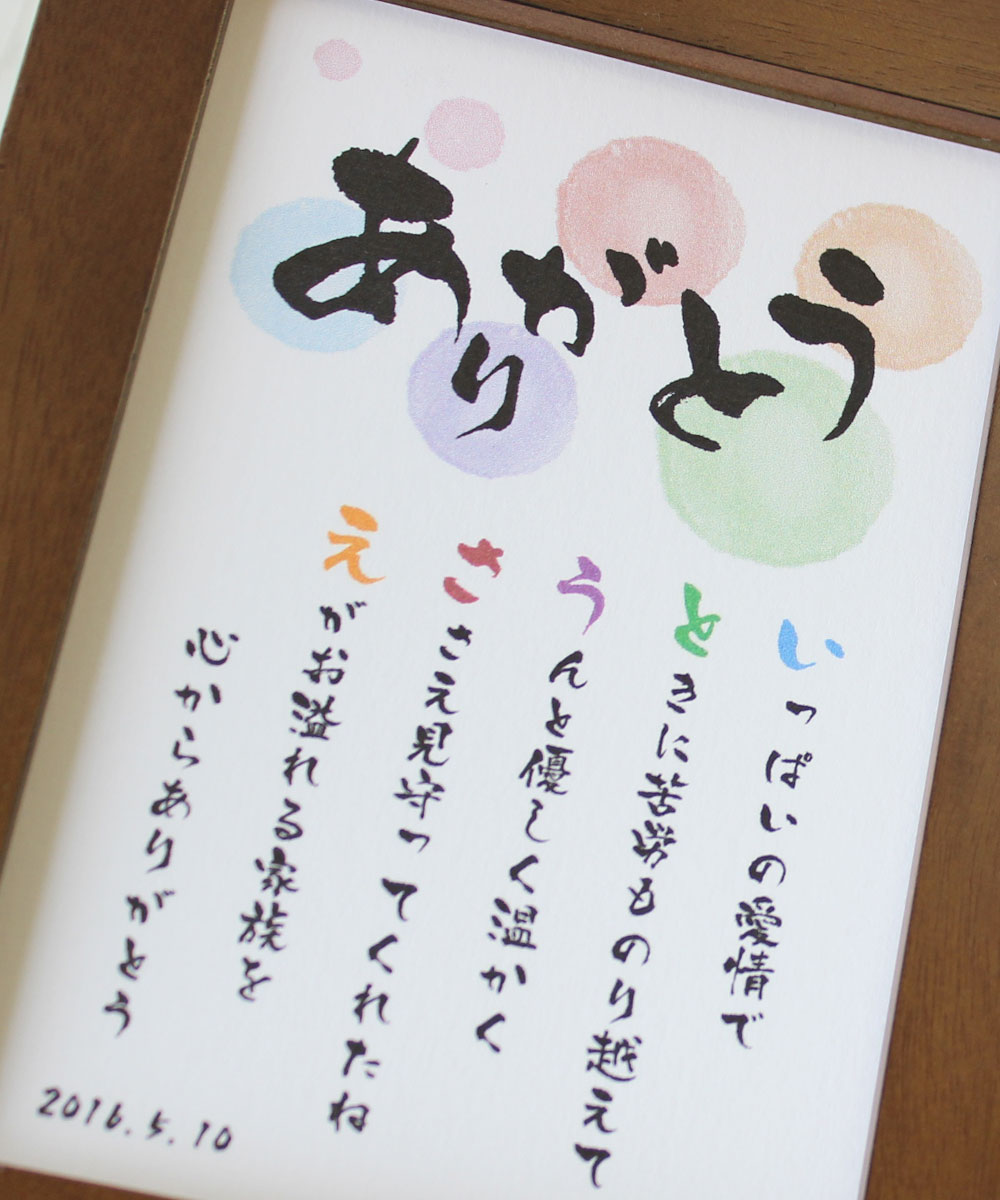 ありがとう
いっぱいの愛情で
ときに苦労ものり越えて
うんと優しく温かく
ささえ見守ってくれたね
えがお溢れる家族を
心からありがとう
2016.5.10